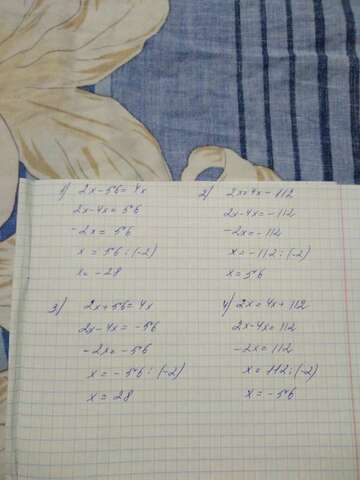 1) 2x-56=4x
2x-4x=56
-2x=56
x=56:(-2)
x=-28
2) 2x=4x-112
2x-4x=-112
-2x=-112
x=-112:(-2)
x=56
3) 2x+56=4x
2x-4x=-56
-2x=-56
x=-56:(-2)
x=28
4) 2x=4x+112
2x-4x=112
-2x=112
x=112:(-2)
x=-56